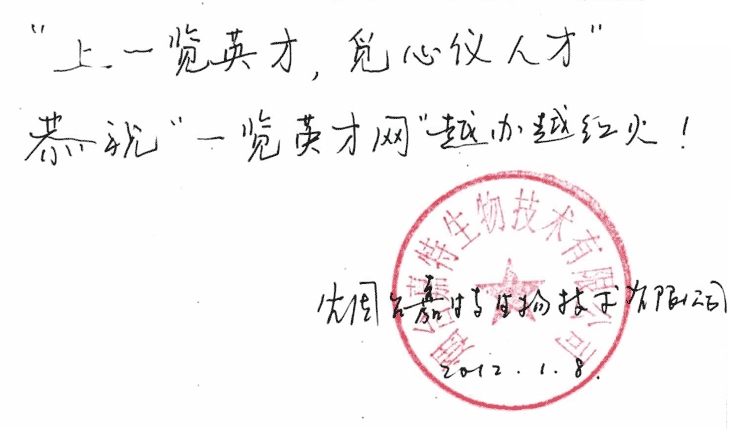 “上一览英才，觅心仪人才”
恭祝“一览英才网”越办越红火！
烟台嘉特生物技术有限公司
烟台嘉特生物技术有限公司
2012.1.8.